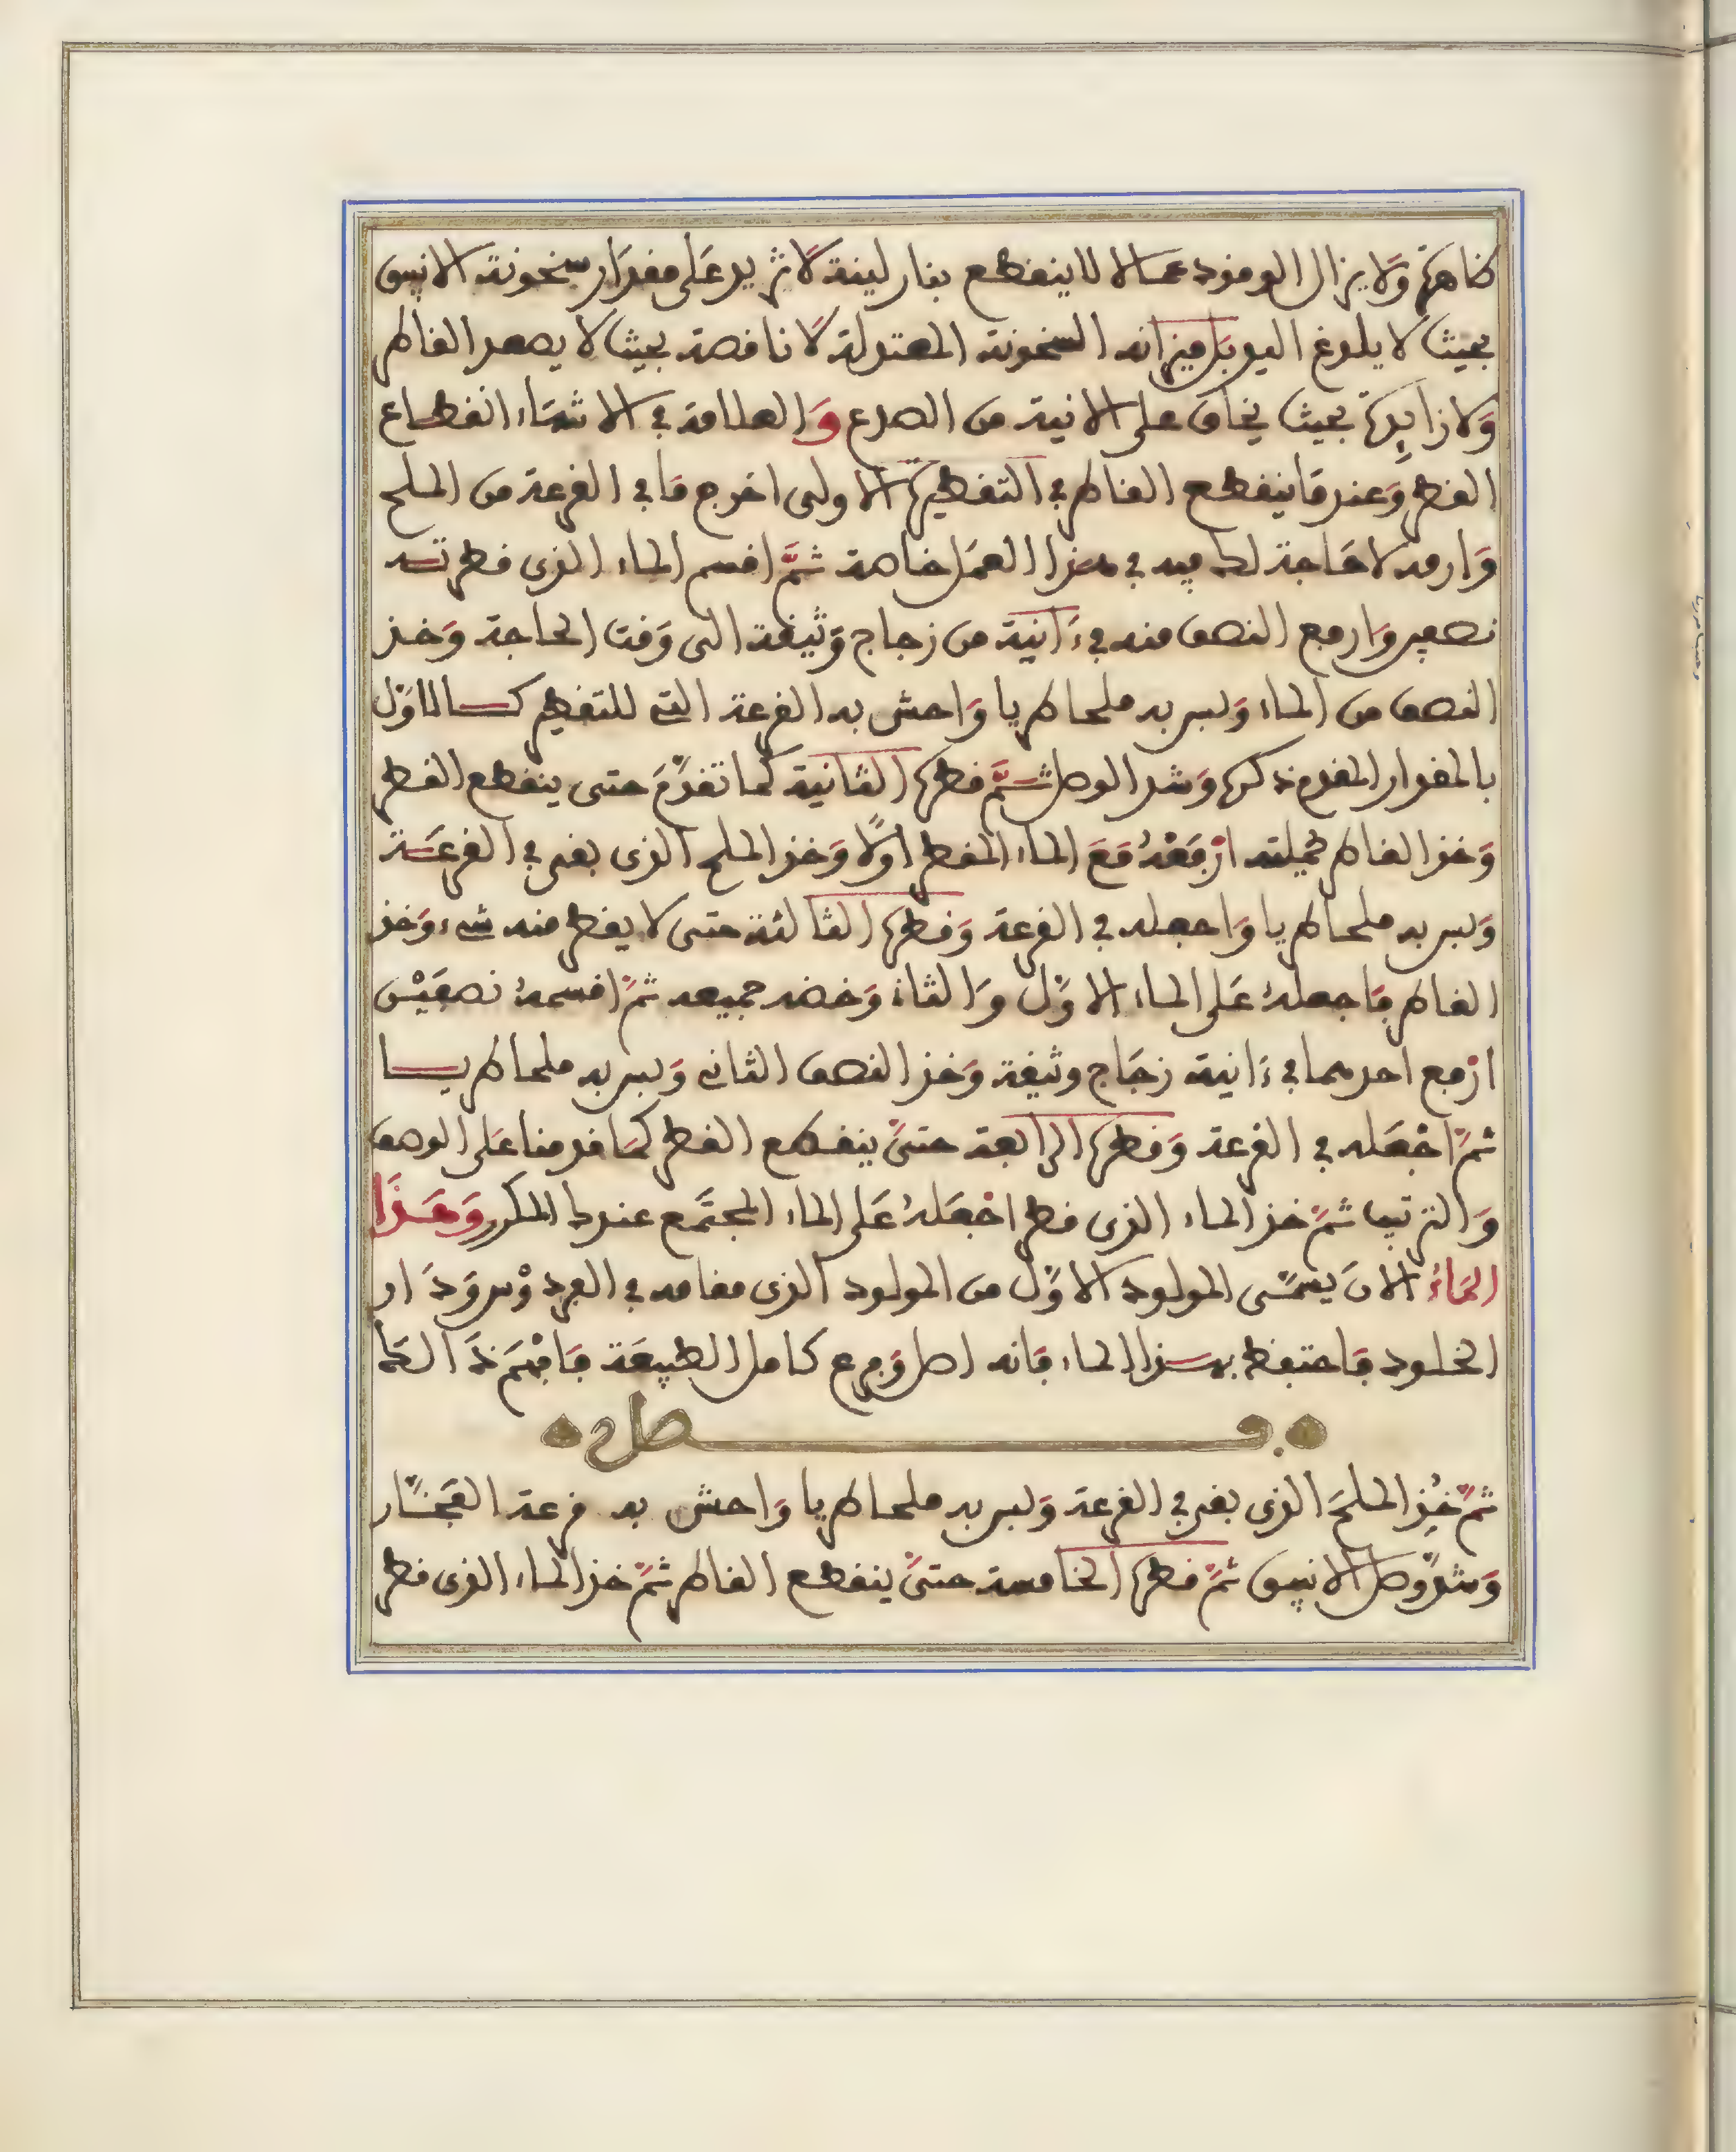 ظاهرة ولا يزال الوقود عمالا لا ينقطع بنار لينة لا تزيد على مقدار سخونة الانبيق
بحيث لا يلدغ اليد بل ميزانه السخونة المعتدلة لا ناقصة بحيث لا يصعد القاطر
ولا زايدة بحيث يخاف على الانية من الصدع والعلامة في الانتهاء انقطاع
القطر وعند ما ينقطع القاطر في التقطيرة الاولى اخرج ما في القرعة من الملح
وارمه لا حاجة لك فيه في هذا العمل خاصة ثمّ اقسم الماء الذي قطرته
نصفين وارفع النصف منه في ءانية من زجاج وثيقة الى وقت الحاجة وخذ
النصف من الماء ولبس به ملحا طريا واحش به القرعة التي للتقطير كالاوّل
بالمقدار المقدم ذكره وشد الوصل ثمّ قطره الثانية كما تقدّم حتى ينقطع القطر
وخذ القاطر بجملته ارفعه مع الماء المقطر اوّلا وخذ الملح الذي بقي في القرعة
ولبس به ملحا طريا واجعله في القرعة وقطره الثالثة حتى لا يقطر منه شيء وخذ
القاطر فاجعله على الماء الاوّل والثان وخضه جميعه ثمّ اقسمه نصفيْن
ارْفع احدهما في ءانية زجاج وثيقة وخذ النصف الثاني ولبس به ملحا طريا
ثمّ اجْعله في القرعة وقطره الرابعة حتىّ ينقطع القطر كما قدمنا على الوصف
والترتيب ثمّ خذ الماء الذي قطر اجْعله على الماء المجتمع عندك المكرر وهذا
الماء الان يسمّى المولود الاوّل من المولود الذي مقامه في الفردوْس ودار
الخلود فاحتفظ بهذا الماء فانه اصل وفرع كامل الطبيعة فافْهم ذالك
فصل
ثمّ خذ الملح الذي بقي في القرعة ولبس به ملحا طريا واحش به قرعة الفخّار
وشدّ وصل الانبيق ثمّ قطره الخامسة حتىّ ينقطع القاطر ثمّ خذ الماء الذي قطر